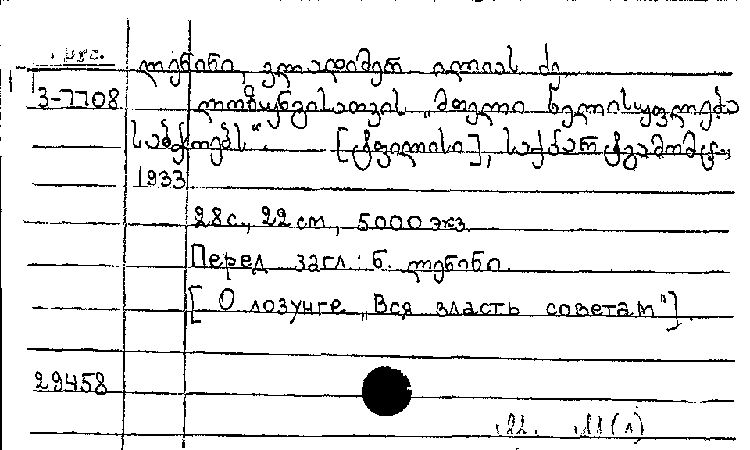 ლენინი, ვლადიმერ ილიას ძე
3-7708 ლოზუნგისათვის „მთელი ხელისუფლება
საბჭოებს“. [ტფილისი], სახ.
1933
28с., 22 см, 5000 экз.
Перед загл.: ნ. ლენინი.
[О лозунге „Вся власть советам"].
29458